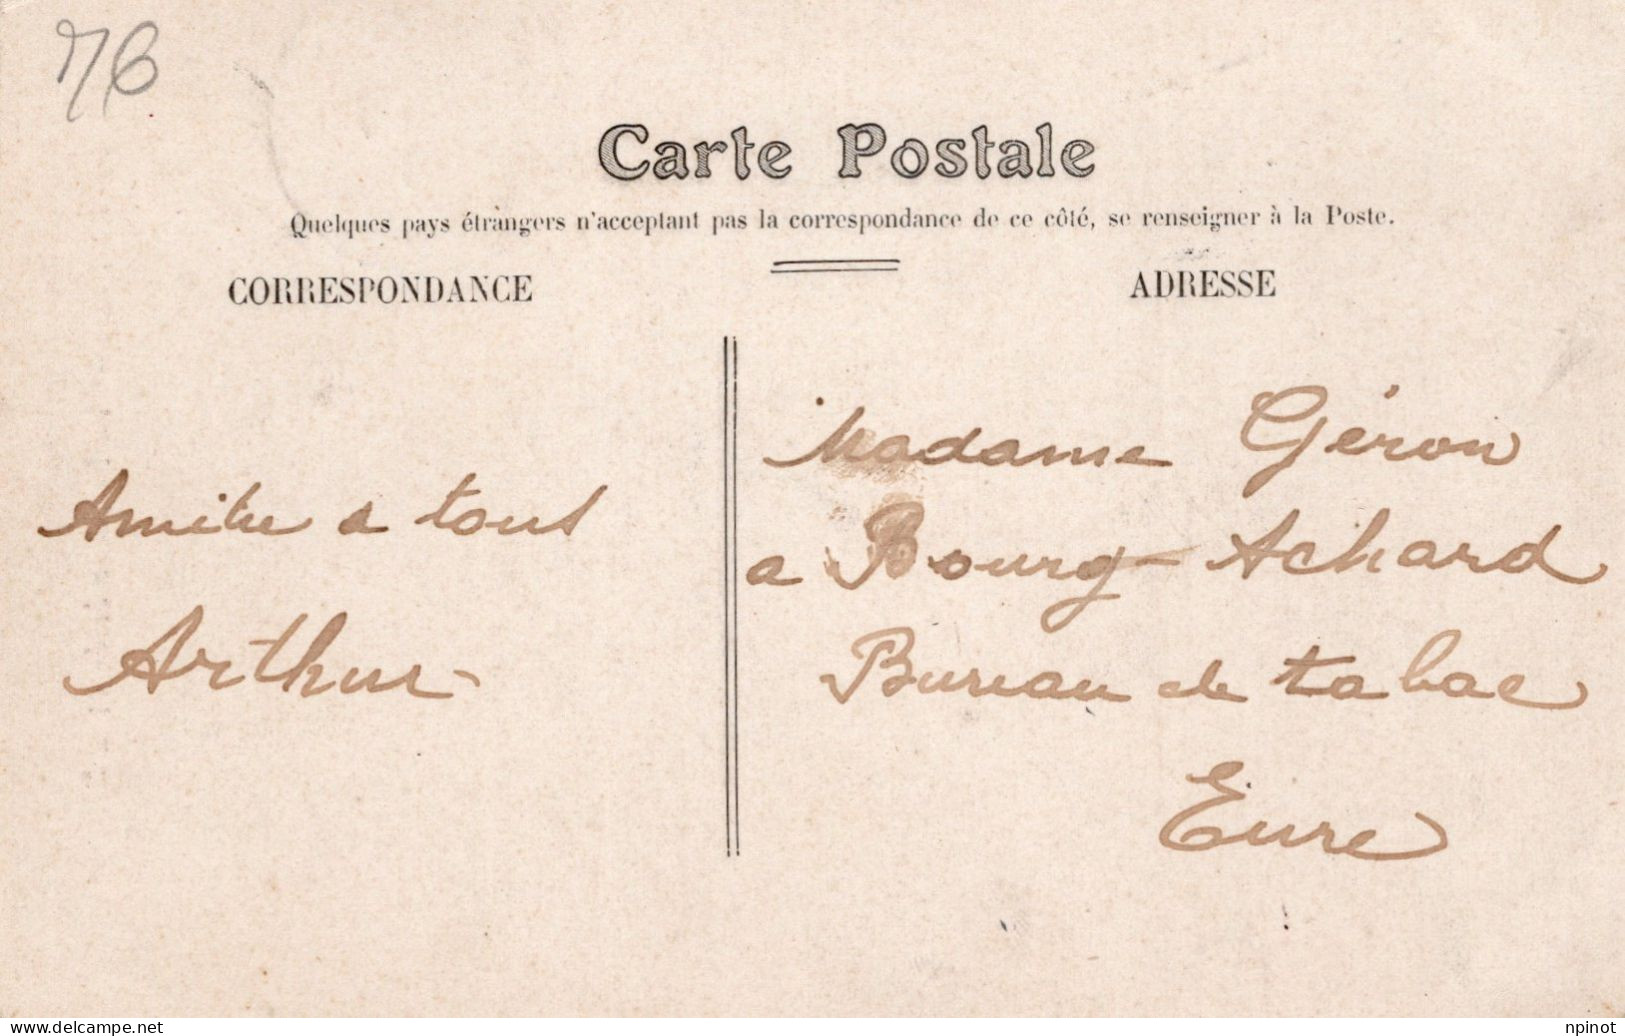 76
Carte Postale
Quelques pays étrangers n'acceptant pas la correspondance de ce côté, se renseigner à la Poste.
CORRESPONDANCE
Amitie a tous
Arthur
ADRESSE
Madame Géron
a Bourg-Achard
Bureau de tabac
Eure
www.delcampe.net
npinot